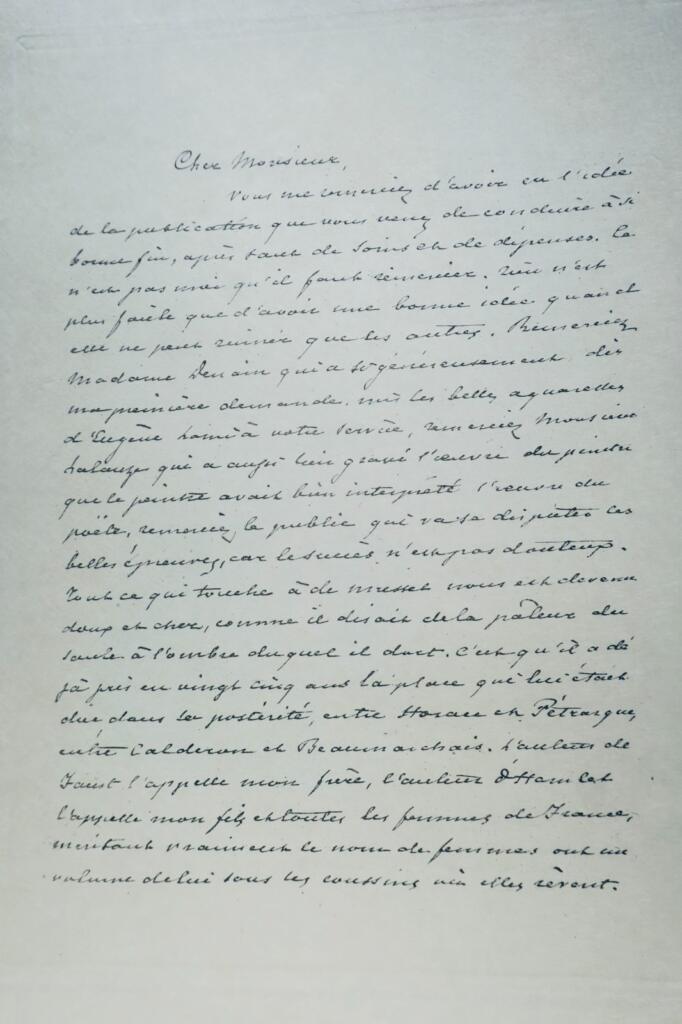 Cher Monsieur,
Vous me remerciez d'avoir eu l'idée
de la publication que vous venez de conduire à si
bonne fin, après tant de soins et de dépenses. Ce
n'est pas moi qu'il faut remercier. Rien n'est
plus facile que d'avoir une bonne idée quand
elle ne peut ruiner que les autres. Remerciez
Madame Denain qui a si généreusement, dès
ma première demande, mis les belles aquarelles
d'Eugène Lami à votre service, remerciez Monsieur
Lalauze qui a aussi bien gravé l'œuvre du peintre
que le peintre avait bien interprété l'œuvre du
poëte, remerciez le public qui va se disputer les
belles épreuves, car le succès n'est pas douteux.
Tout ce qui touche à de Musset nous est devenu
doux et cher, comme il disait de la pâleur du
saule à l'ombre duquel il dort. C'est qu'il a dé
jà pris en vingt cinq ans la place qui lui était
due dans la postérité, entre Horace et Pétrarque,
entre Calderon et Beaumarchais. L'auteur de
Faust l'appelle mon frère, l'auteur d'Hamlet
l'appelle mon fils et toutes les femmes de France,
méritant vraiment le nom de femmes ont un
volume de lui sous les coussins où elles rêvent.